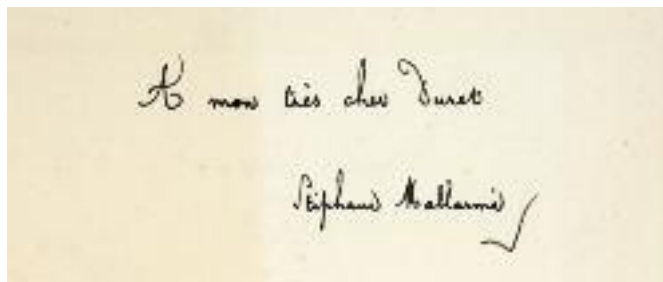 A mon très cher Duret
Stéphane Mallarmé